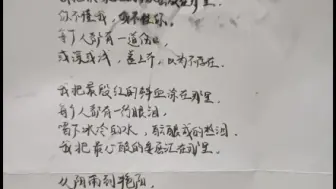 你不懂我，我不怪你。
每个人都有一道伤口，
或深或浅，盖上布，以为不存在。
我把最殷红的鲜血涂在那里。
每个人都有一行眼泪，
喝下冰冷的水，酝酿成的热泪。
我把最心酸的委屈汇在那里。
从阴雨到艳阳，